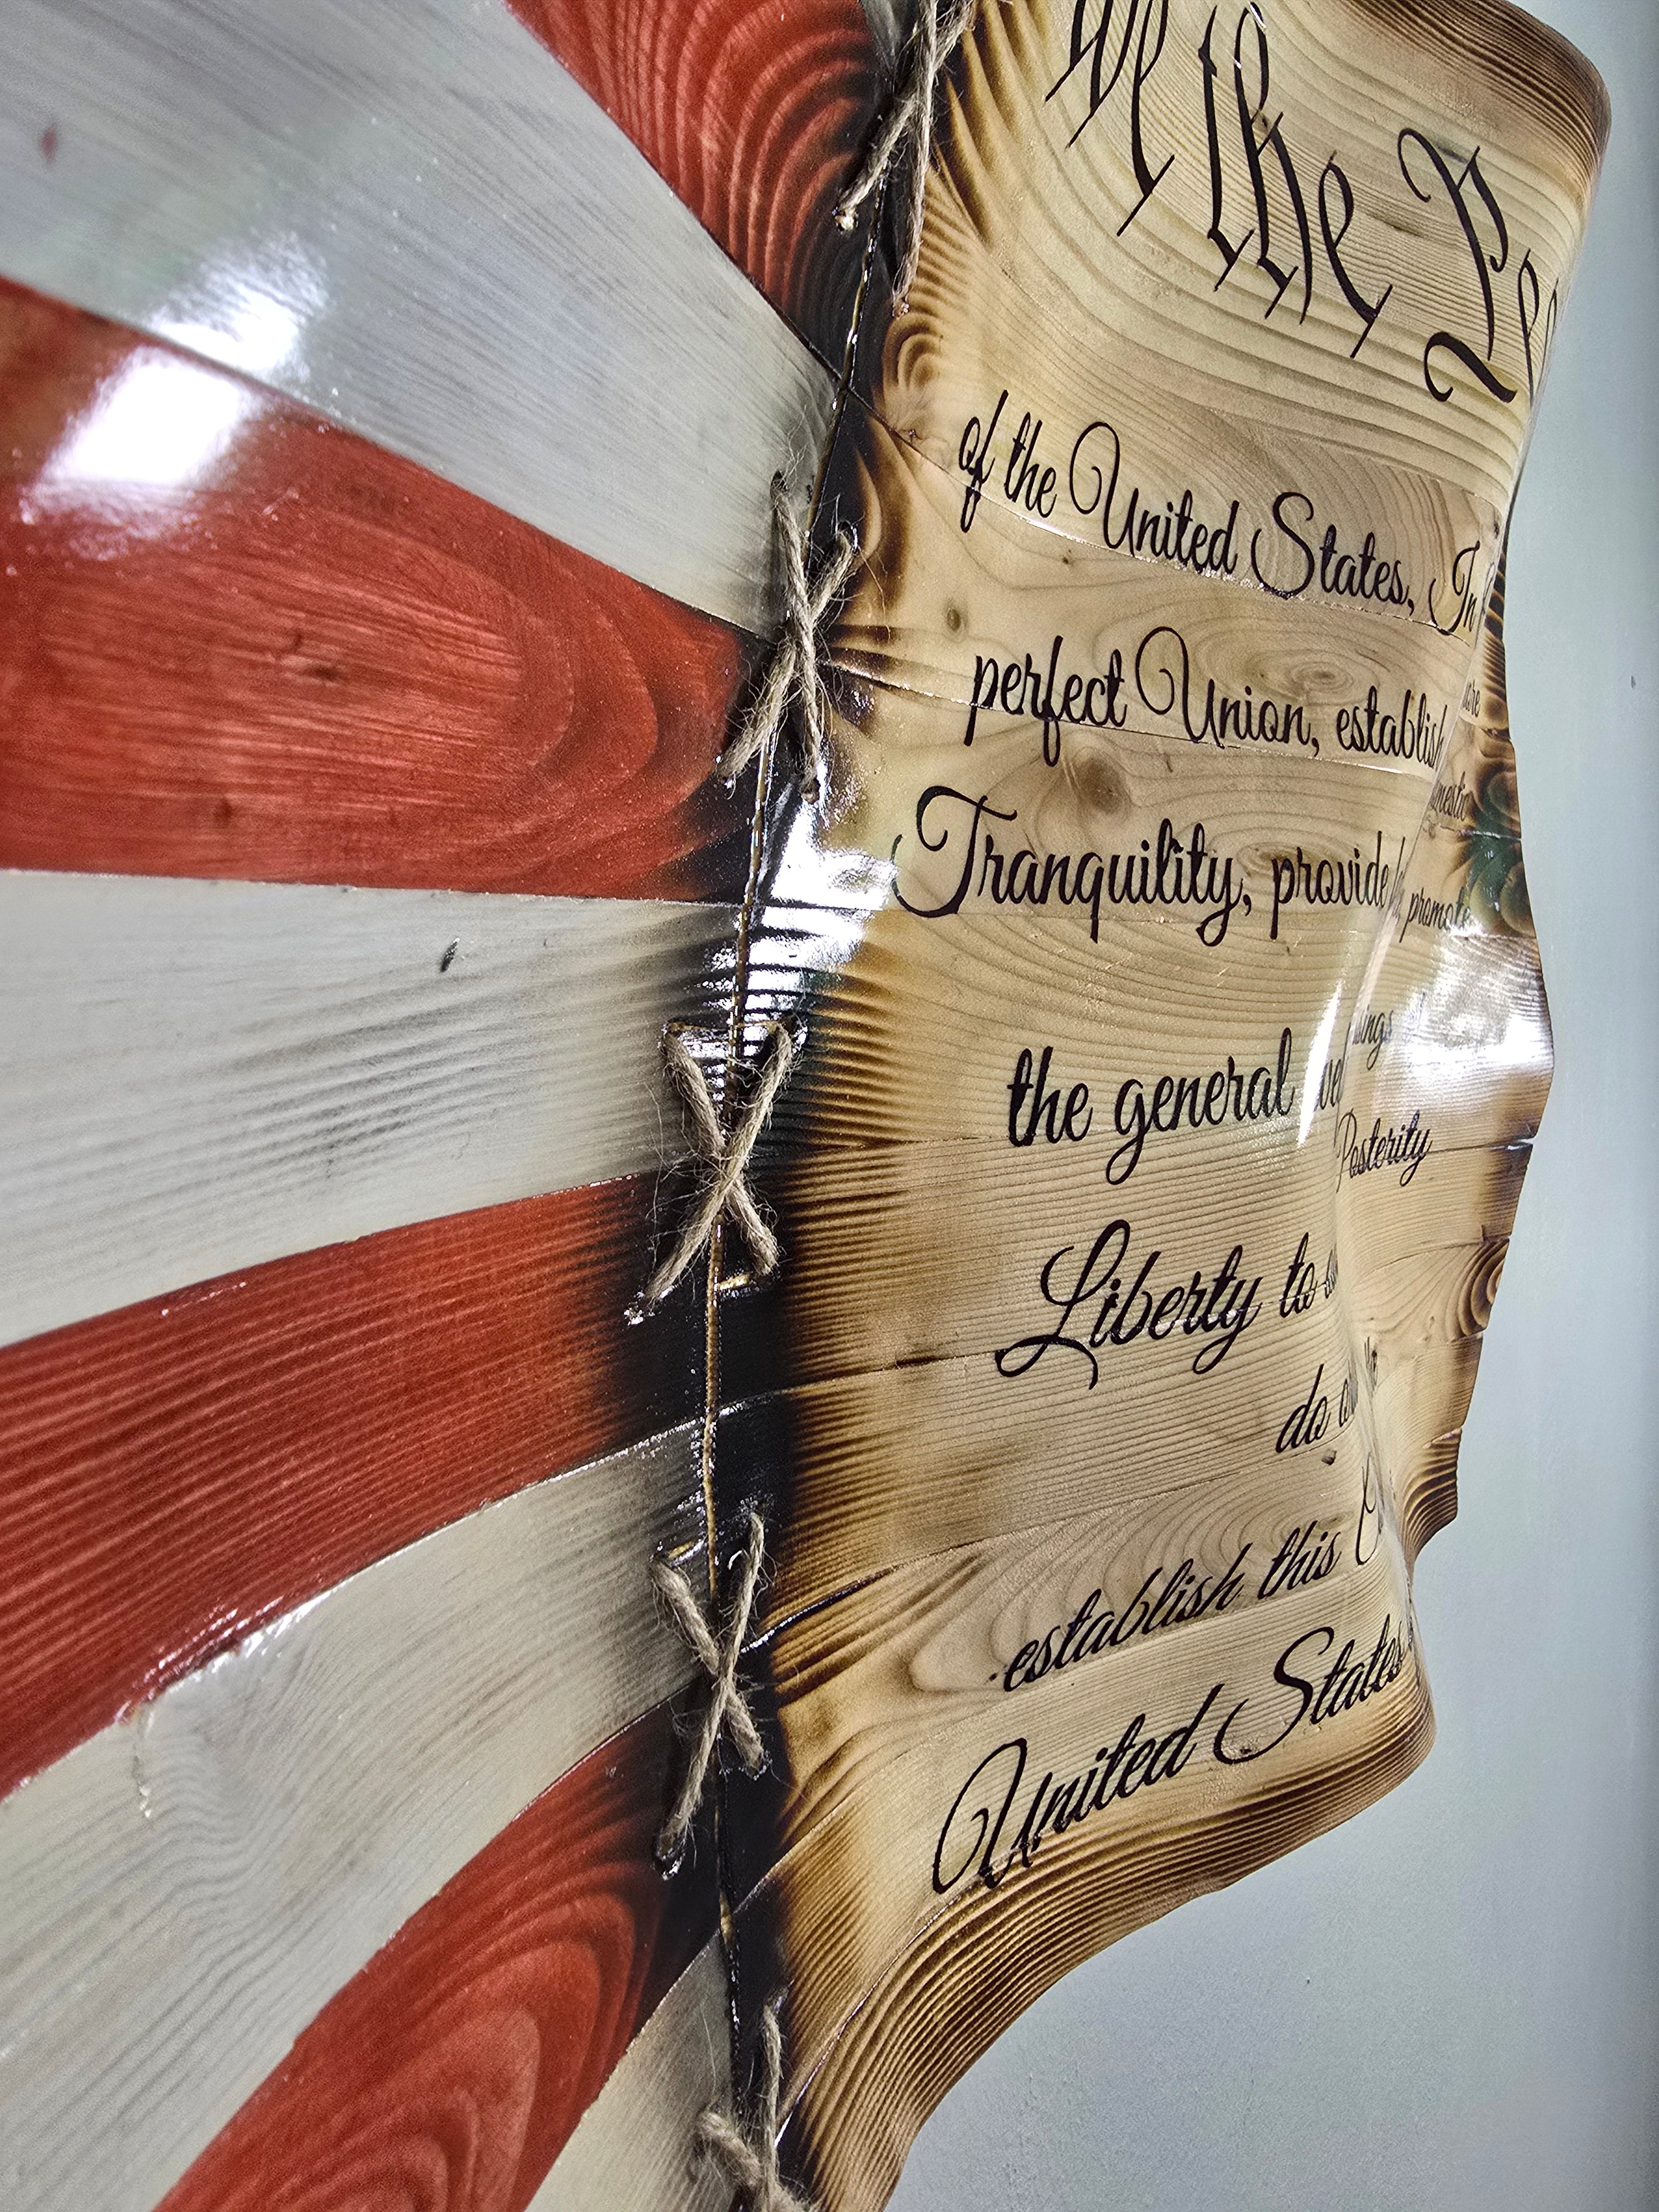 We the Peo
of the United States, In
perfect Union, establish
Tranquility, provide promote
the general
Posterity
Liberty to
do
establish this
United States